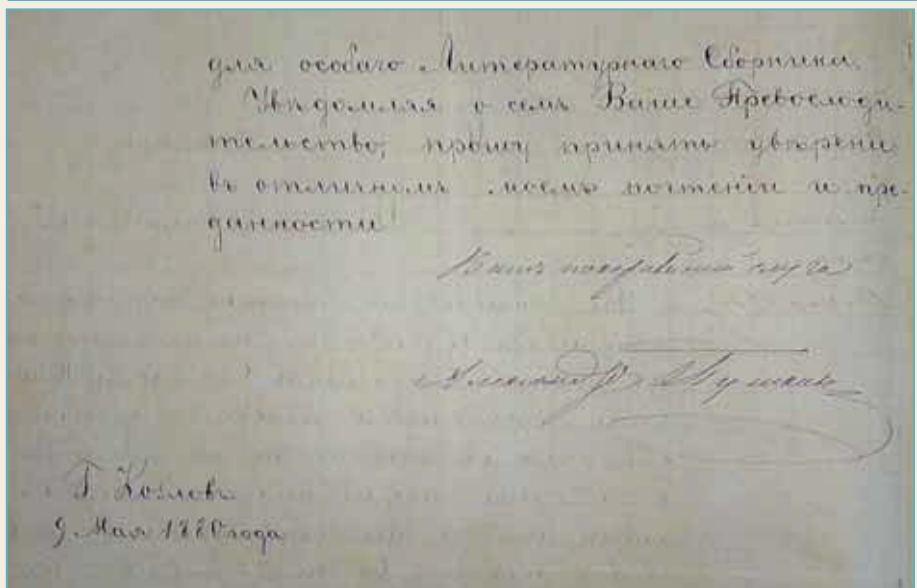 для особаго Литературнаго Сборника.
Увѣдомляя о семъ Ваше Превосходи-
тельство, прошу принять увѣренiе
въ отличномъ моемъ почтенiи и пре-
данности.
Вашъ покорнѣйшiй слуга
Александръ Пушкинъ
Г. Козловъ
9 Мая 1880 года